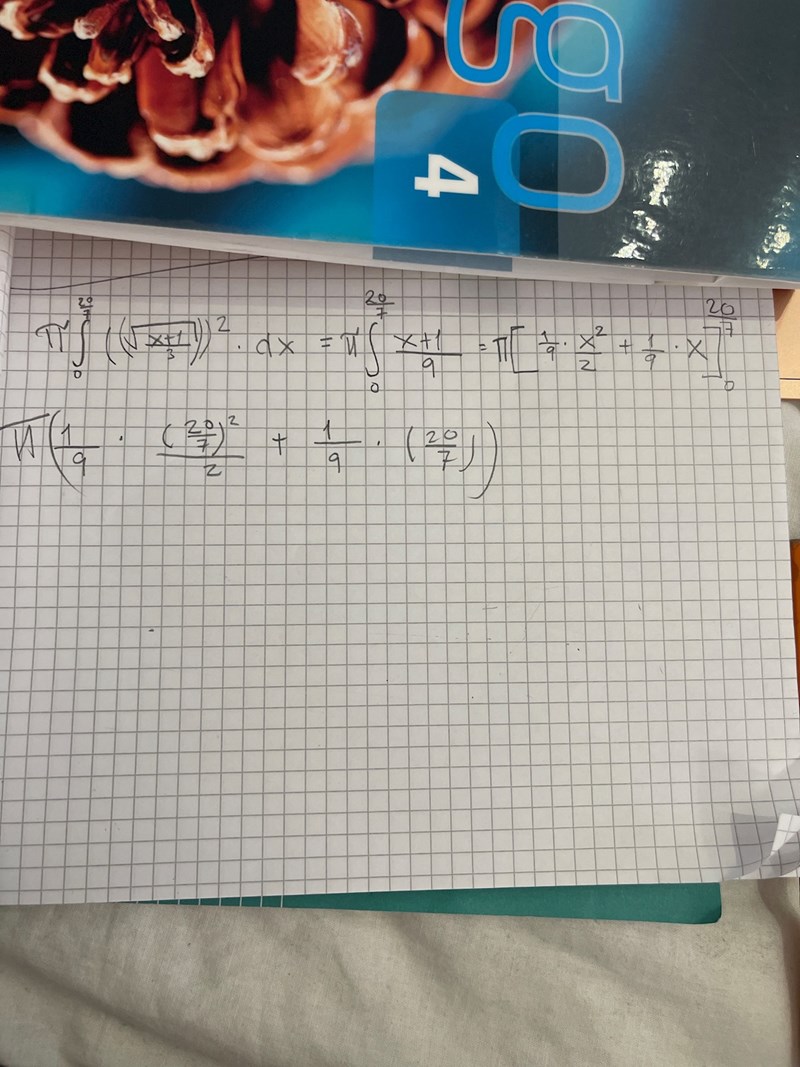 go
4
π∫₀^(20/7) ((√(x+1)/3))² · dx = π∫₀^(20/7) (x+1)/9 = π[1/9 · x²/2 + 1/9 · x]₀^(20/7)
π(1/9 · (20/7)²/2 + 1/9 · (20/7))